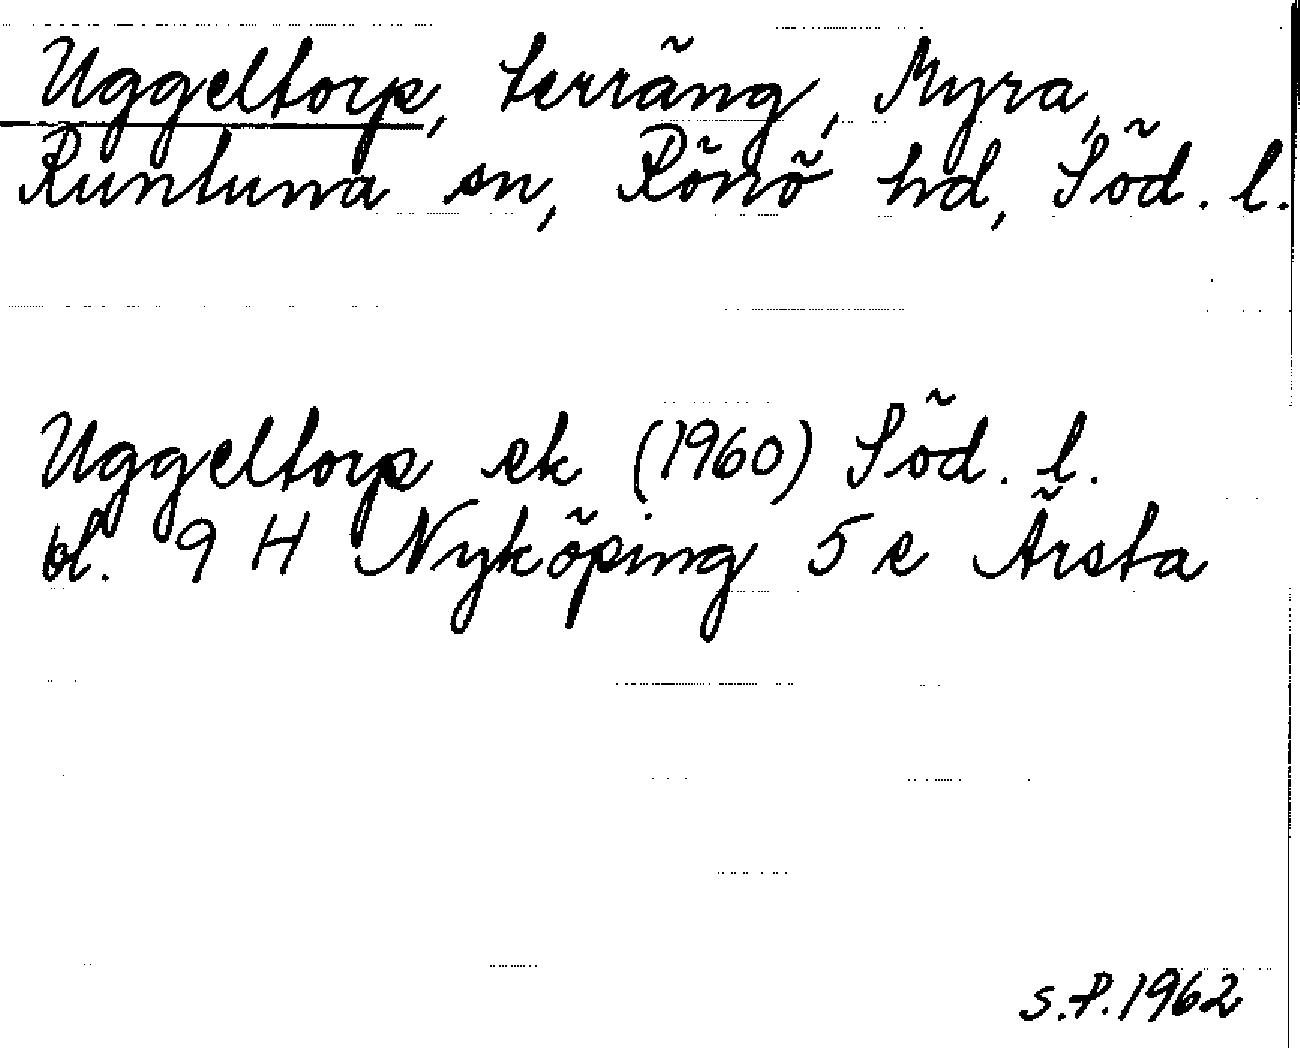 Uggeltorp, terräng, Myra,
Runtuna sn, Rönö hd, Söd. l.
Uggeltorp ek (1960) Söd. l.
bl. 9 H Nyköping 5 e Årsta
S.P. 1962